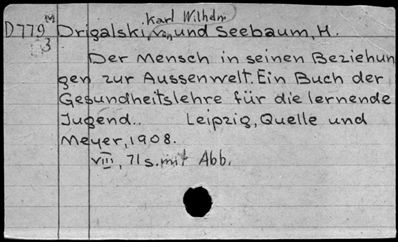 Karl Wilhelm
D779 M Drigalski, von und Seebaum, H.
3
Der Mensch in seinen Beziehun
gen zur Aussenwelt. Ein Buch der
Gesundheitslehre für die lernende
Jugend.. Leipzig, Quelle und
Meyer, 1908.
VIII, 71 s. mit Abb.